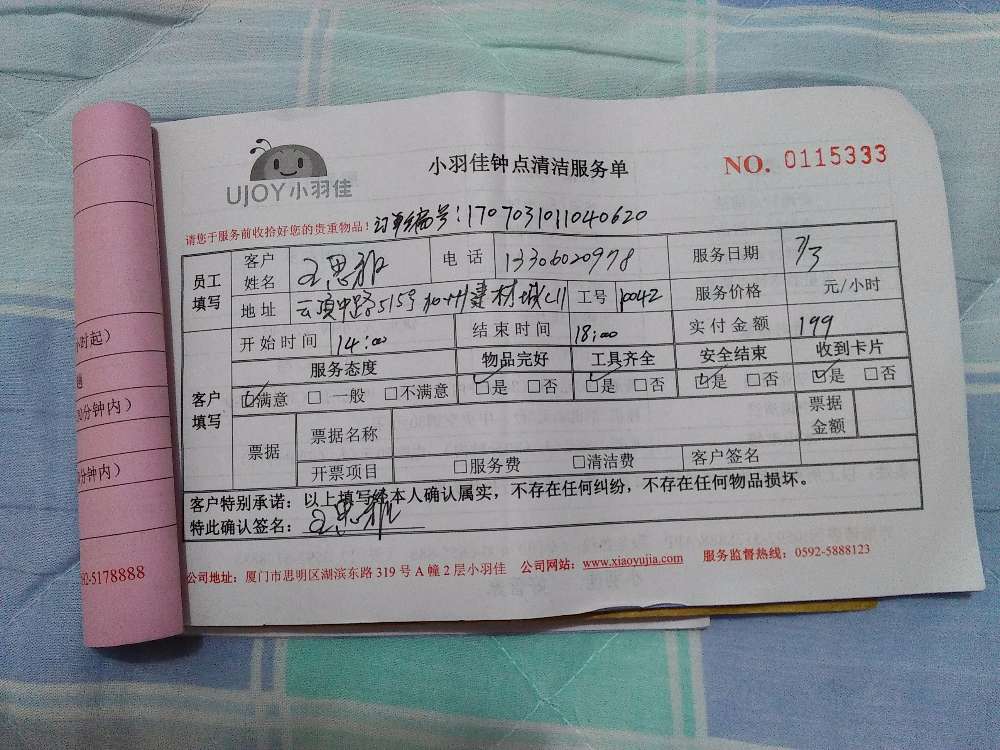 UJOY小羽佳
小羽佳钟点清洁服务单
NO. 0115333
请您于服务前收拾好您的贵重物品!
订单编号:1707031011040620
员工填写 客户姓名 王思雅 电话 13306020978 服务日期 7/3
地址 云顶中路515号加州建材城C11 工号 p042 服务价格 元/小时
开始时间 14:00 结束时间 18:00 实付金额 199
客户填写 服务态度 物品完好 工具齐全 安全结束 收到卡片
☑满意 □一般 □不满意 ☑是 □否 ☑是 □否 ☑是 □否 ☑是 □否
票据 票据名称 票据金额
开票项目 □服务费 □清洁费 客户签名
客户特别承诺:以上填写经本人确认属实,不存在任何纠纷,不存在任何物品损坏。
特此确认签名:王思雅
公司地址:厦门市思明区湖滨东路 319 号 A 幢 2 层小羽佳 公司网站:www.xiaoyujia.com 服务监督热线:0592-5888123
时起)
分钟内)
分钟内)
92-5178888